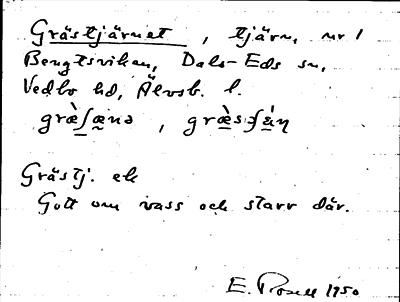 Grästjärnet, tjärn, nr 1
Bengtsviken, Dals-Eds sn,
Vedbo hd, Älvsb. l.
græ̀ʃænə, græ̀sʃǽɳ
Grästj. ek
Gott om vass och starr där.
E. Rosell 1950